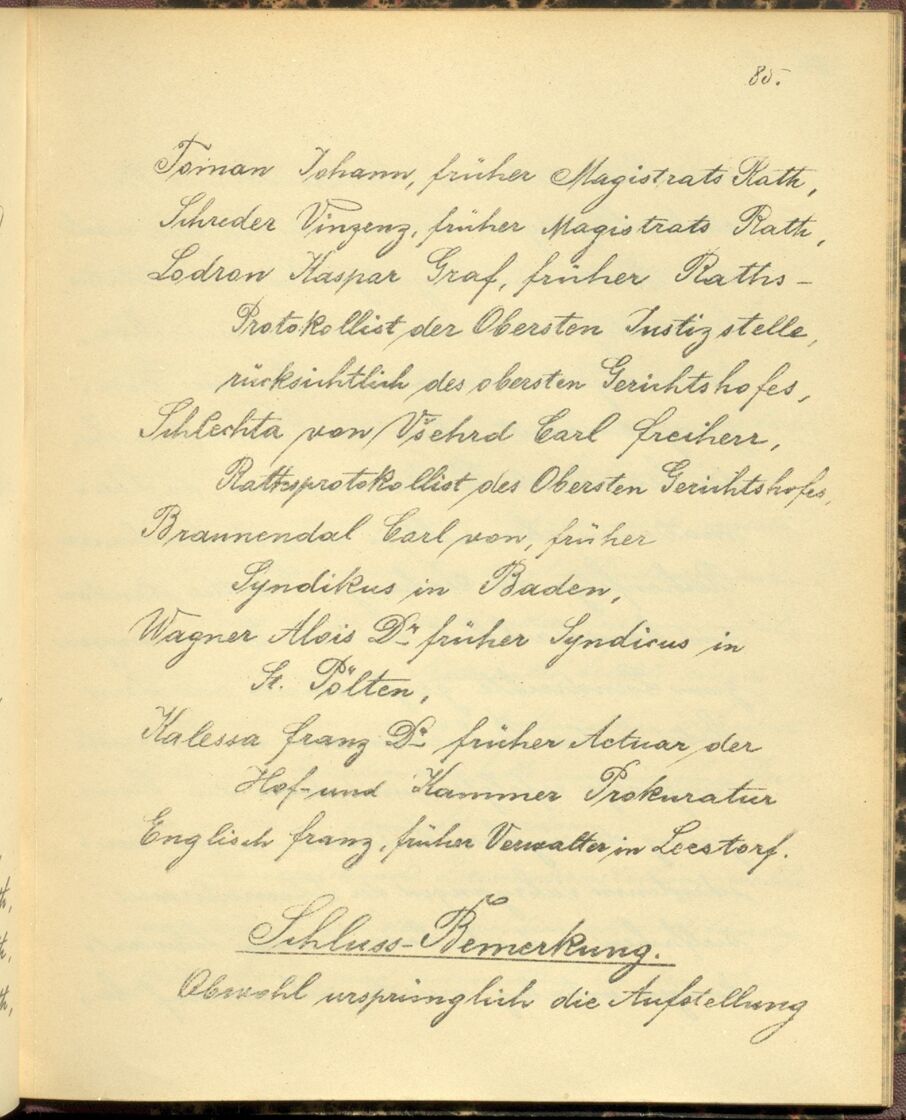 85.
Toman Johann, früher Magistrats Rath,
Schreder Vinzenz, früher Magistrats Rath,
Lodron Kaspar Graf, früher Raths-
Protokollist der Obersten Justizstelle,
rücksichtlich des obersten Gerichtshofes,
Schlechta von Všehrd Carl Freiherr,
Rathsprotokollist des Obersten Gerichtshofes,
Braunendal Carl von, früher
Syndikus in Baden,
Wagner Alois Dr. früher Syndicus in
St. Pölten,
Kalessa Franz Dr. früher Actuar der
Hof- und Kammer Prokuratur
Englisch Franz, früher Verwalter in Leestorf.
Schluss-Bemerkung.
Obwohl ursprünglich die Aufstellung